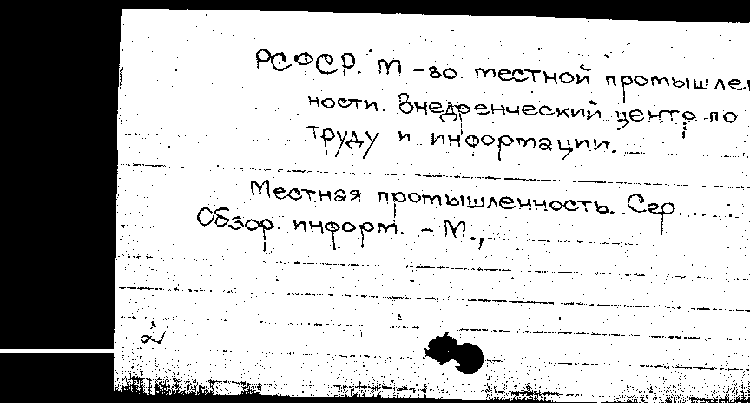 РСФСР. М-во. местной промышлен
ности. Внедренческий центр по
труду и информации.
Местная промышленность. Сер
Обзор. информ. - М.,